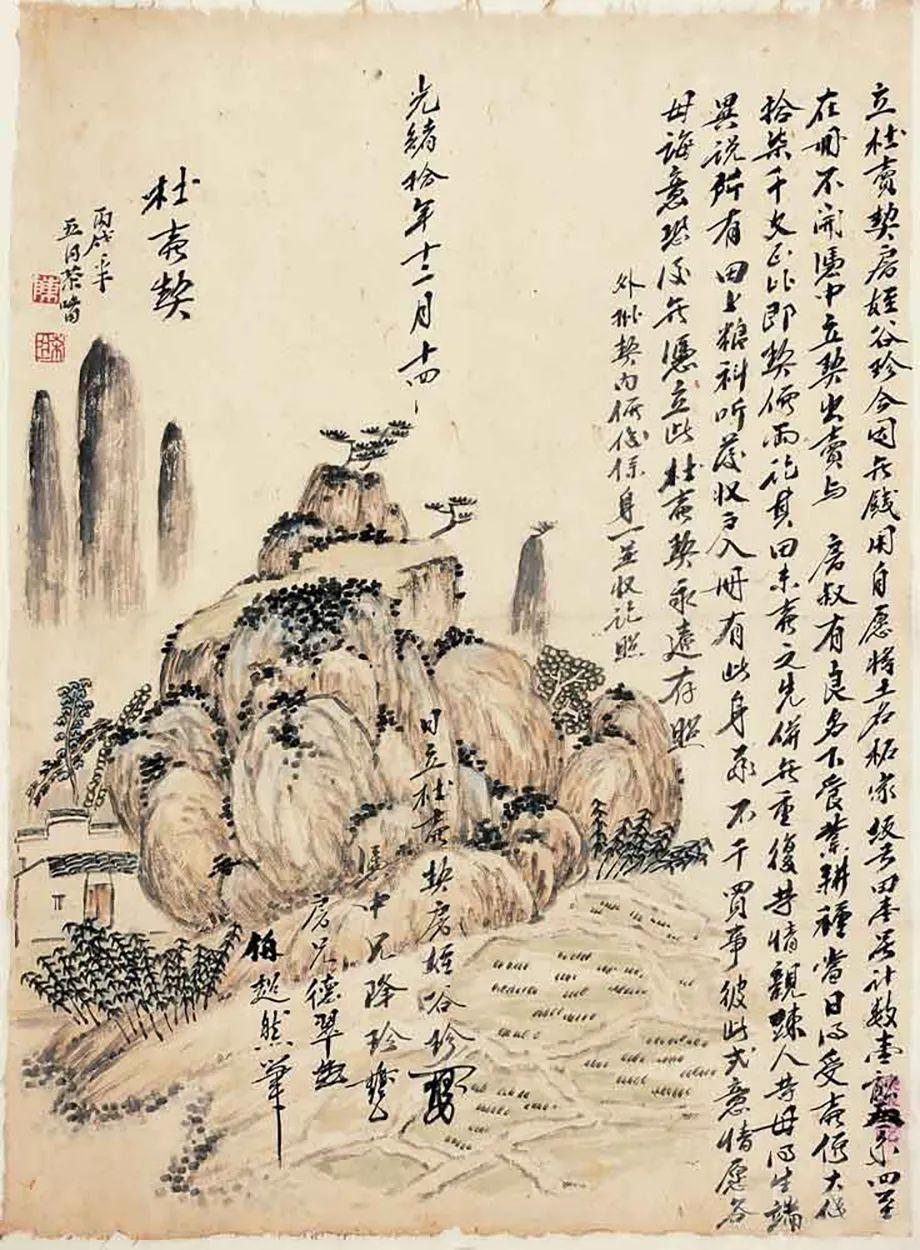 立杜賣契房姪谷珍今因無錢用自愿將土名柘家坂民田壹號計數壹畝 四至
在冊不開憑中立契出賣与 房叔有良名下管業耕種當日得受賣價大錢
拾柒千文正比即契價兩訖其田未賣之先併無重復等情親踈人等毋得生端
異說所有田畝糧科听憑收戶入冊有此身承不干買事彼此式意情愿各
毋誨意恐後無憑立此杜賣契永遠存照
外批契內價錢係身一並收訖照
光緒拾年十二月十四
日立杜賣契房姪谷珍
憑中兄降珍
房兄德翠
伯超然筆
杜賣契
丙戌年
五月